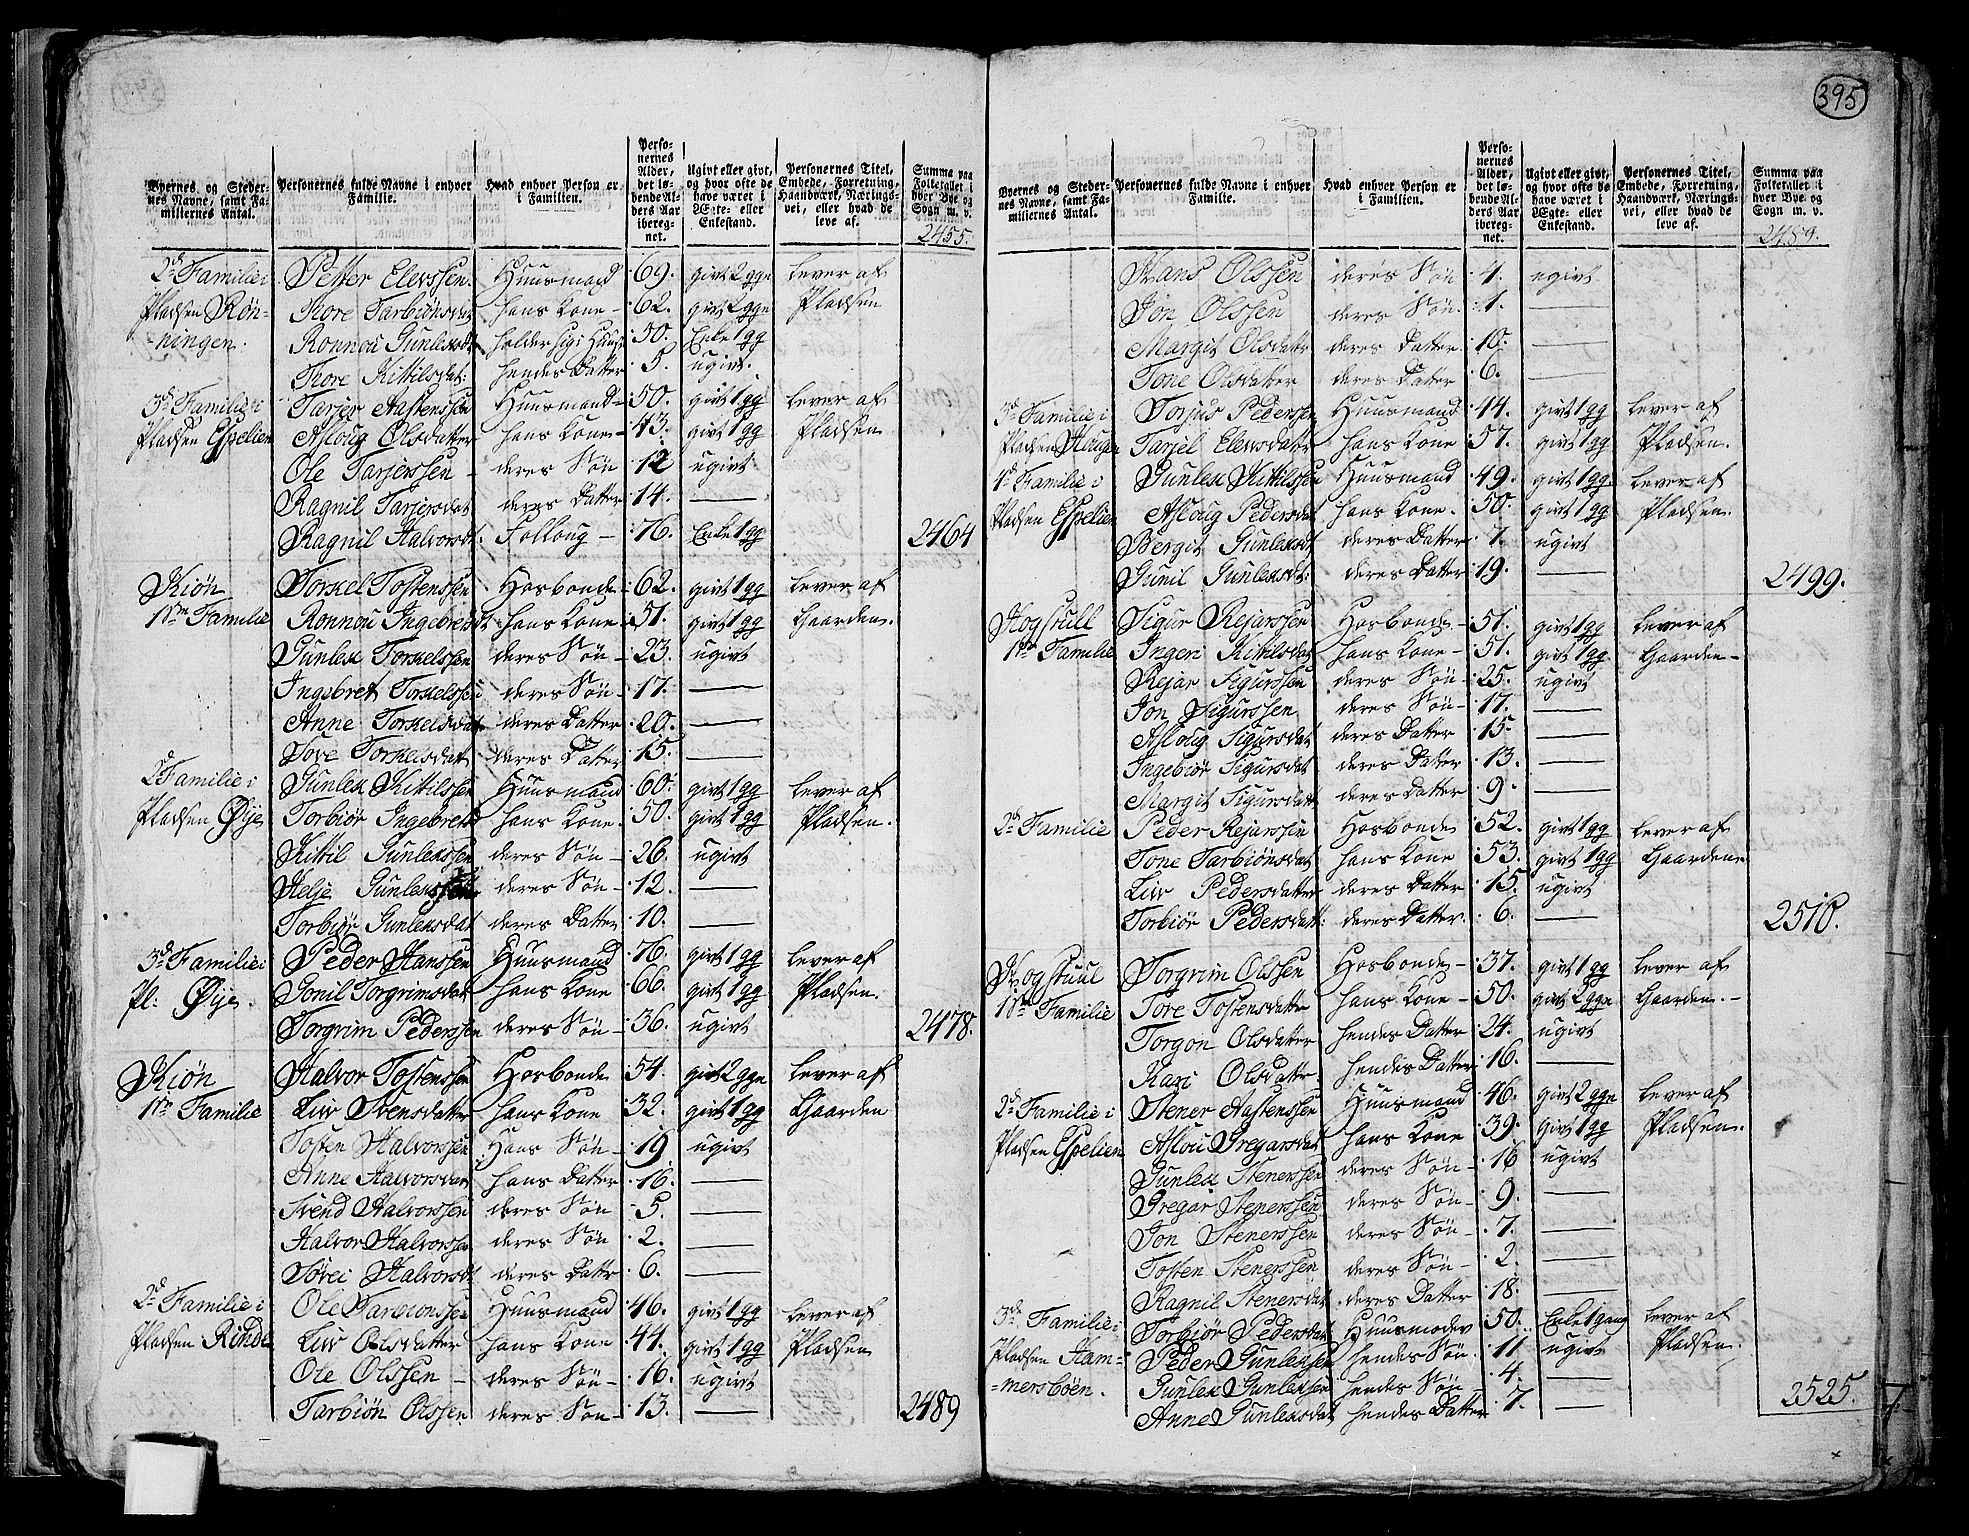 Byernes og Steder-
nes Navne, samt Fa-
miliernes Antal.
Personernes fulde Navne i enhver
Familie.
Hvad enhver Person er
i Familien.
Perso-
nernes
Alder,
det lø-
bende Al-
ders Aar
iberegnet.
Ugivt eller givt,
og hvor ofte de
have været i
Ægte- eller
Enkestand.
Personernes Titel,
Embede, Forretning,
Haandværk, Nærings-
vei, eller hvad de
leve af.
Summa paa
Folketallet i
hver Bye og
Sogn m. v.
2455.
2d Familie i Petter Elevssen. Huusmand 69. givt 2 gge lever af
Pladsen Røn- Tore Tarbiønsdat hans Kone 62. givt 2 gge Pladsen
-ningen. Ronnou Gunleksdat holder sig i Huus 50. Enke 1 gg
Tore Kittilsdat: hendes Datter 5. ugivt.
3d Familie i Tarjer Aastenssen Huusmand 50. givt 1 gg lever af
Pladsen Espelien Asloug Olsdatter hans Kone 43. givt 1 gg Pladsen
Ole Tarjerssen deres Søn 12 ugivt
Ragnil Tarjersdat deres Datter 14. —
Ragnil Halvorsdt. Folloug 76. Enke 1 gg 2464
Kiøn Torkel Tostenssen Hosbonde 62. givt 1 gg lever af
1ste Familie Ronnou Ingebretsdt hans Kone 51. givt 1 gg Gaarden.
Gunlek Torkelssen deres Søn 23. ugivt
Ingebret Torkelssen deres Søn 17. —
Anne Torkelsdat deres Datter 20. —
Tove Torkelsdat deres Datter 15. —
2d Familie i Gunlek Kittilssen Huusmand 60. givt 1 gg lever af
Pladsen Øije Torbiør Ingebretsd hans Kone. 50. givt 1 gg Pladsen.
Kittil Gunlekssen deres Søn 26. ugivt
Helje Gunlekssen deres Søn 12. —
Torbiør Gunleksdat deres Datter 10. —
3d Familie i Peder Hanssen Huusmand 76. givt 1 gg lever af
Pl: Øije. Gonil Torgrimsdat hans Kone 66. givt 1 gg Pladsen.
Torgrim Pederssen deres Søn 36. ugivt 2478.
Kiøn Halvor Tostenssen Hosbonde 54. givt 2 gge lever af
1ste Familie Liv Svensdatter hans Kone 32. givt 1 gg Gaarden
Tosten Halvorssen Hans Søn 19 ugivt
Anne Halvorsdat hans Datter 16. —
Svend Halvorssen deres Søn 5. —
Halvor Halvorssen deres Søn 2. —
Sørei Halvorsdt deres Dattr 6. —
2d Familie i Ole Tarbionssen Huusmand 46. givt 1 gg lever af
Pladsen Rinde Liv Olsdatter hans Kone 44. givt 1 gg Pladsen
Ole Olssen deres Søn 16. ugivt
Tarbiøn Olssen deres Søn 13. — 2489
395
Byernes og Steder-
nes Navne, samt Fa-
miliernes Antal.
Personernes fulde Navne i enhver
Familie.
Hvad enhver Person er
i Familien.
Perso-
nernes
Alder,
det lø-
bende Al-
ders Aar
iberegnet.
Ugivt eller givt,
og hvor ofte de
have været i
Ægte- eller
Enkestand.
Personernes Titel,
Embede, Forretning,
Haandværk, Nærings-
vei, eller hvad de
leve af.
Summa paa
Folketallet i
hver Bye og
Sogn m. v.
2489.
Hans Olssen deres Søn 4. ugivt
Jon Olssen deres Søn 1. —
Margit Olsdattr deres Datter 10. —
Tone Olsdatter deres Datter 6. —
3d Familie i Torjus Pederssen Huusmand 44. givt 1 gg lever af
Pladsen Haugen Tarjel Elevsdatter hans Kone 57. givt 1 gg Pladsen.
4d Familie i Gunlek Kittilssen Huusmand 49. givt 1 gg. lever af
Pladsen Espelien Asloug Pedersdat hans Kone. 50. givt 1 gg Pladsen.
Bergit Gunleksdt deres Datter 7. ugivt
Gunil Gunleksdt: deres Datter 19. — 2499.
Hogstull Sigur Rejarssen Hosbonde 51. givt 1 gg lever af
1ste Familie Ingeri Kittilsdat hans Kone 51. givt 1 gg. Gaarden
Rejar Sigurssen deres Søn 25. ugivt
Jon Sigurssen deres Søn 17. —
Asloug Sigursdat deres Datter 15. —
Ingebiør Sigursdat deres Datter 13. —
Margit Sigursdatt deres Datter 9. —
2d Familie Peder Rejarssen Hosbonde 52. givt 1 gg lever af
Tone Tarbiønsdat hans Kone 53. givt 1 gg Gaarden
Liv Pedersdatter deres Datter 15. ugivt
Torbiør Pedersdatt: deres Datter. 6. — 2510.
Hogstuul Torgrim Olssen Hosbonde 37. givt 1 gg lever af
1ste Familie Tore Tostensdatter hans Kone 50. givt 2 gge Gaarden.
Torgon Olsdatter hendes Datter 24. ugivt
Kari Olsdattr hendes Datter 16. —
2d Familie i Stener Aastenssen Huusmand 46. givt 2 gge lever af
Pladsen Espelien Aslou Gregarsdat hans Kone 39. givt 1 gg Pladsen.
Gunlek Stenerssen deres Søn 16 ugivt
Gregar Stenerssen deres Søn 9. —
Jon Stenerssen deres Søn 7. —
Tosten Stenerssen deres Søn 2. —
Ragnil Stenersdat deres Datter 18. —
3d Familie i Torbiør Pedersdat Huusmoder 50. Enke 1 gang lever af
Pladsen Ham- Peder Gunlekssen hendes Søn. 11 ugivt Pladsen.
-mersbøen. Gunlek Gunlekssen hendes Søn 4. —
Anne Gunleksdat hendes Datter 7. — 2525.